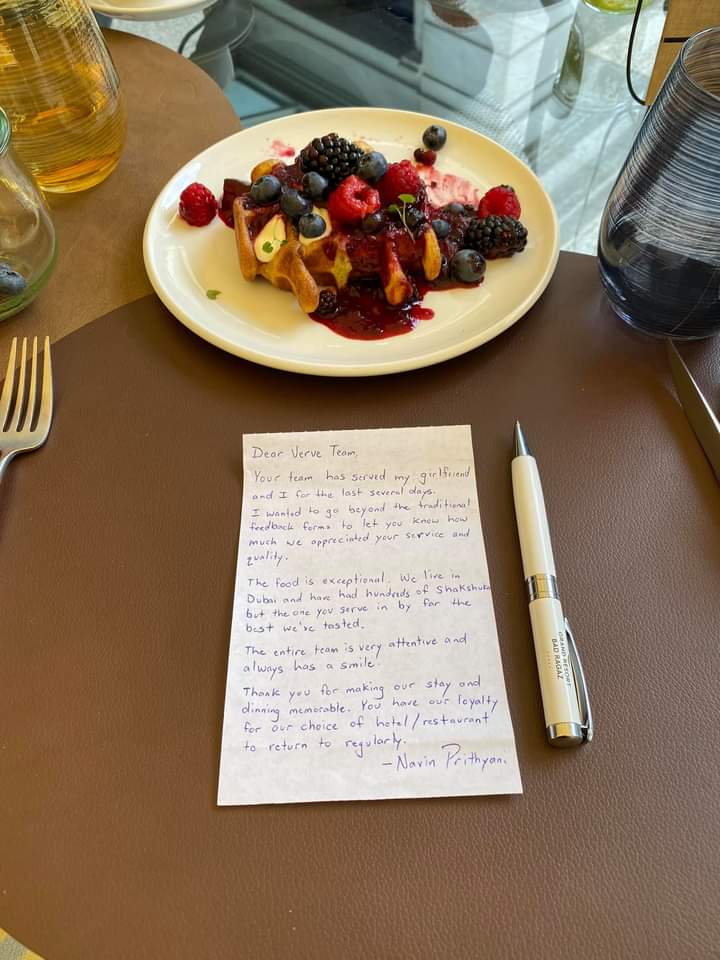 Dear Verve Team,
Your team has served my girlfriend
and I for the last several days.
I wanted to go beyond the traditional
feedback forms to let you know how
much we appreciated your service and
quality.
The food is exceptional. We live in
Dubai and have had hundreds of Shakshuka
but the one you serve in by far the
best we've tasted.
The entire team is very attentive and
always has a smile.
Thank you for making our stay and
dinning memorable. You have our loyalty
for our choice of hotel/restaurant
to return to regularly.
- Navin Prithyani
GRAND RESORT
BAD RAGAZ